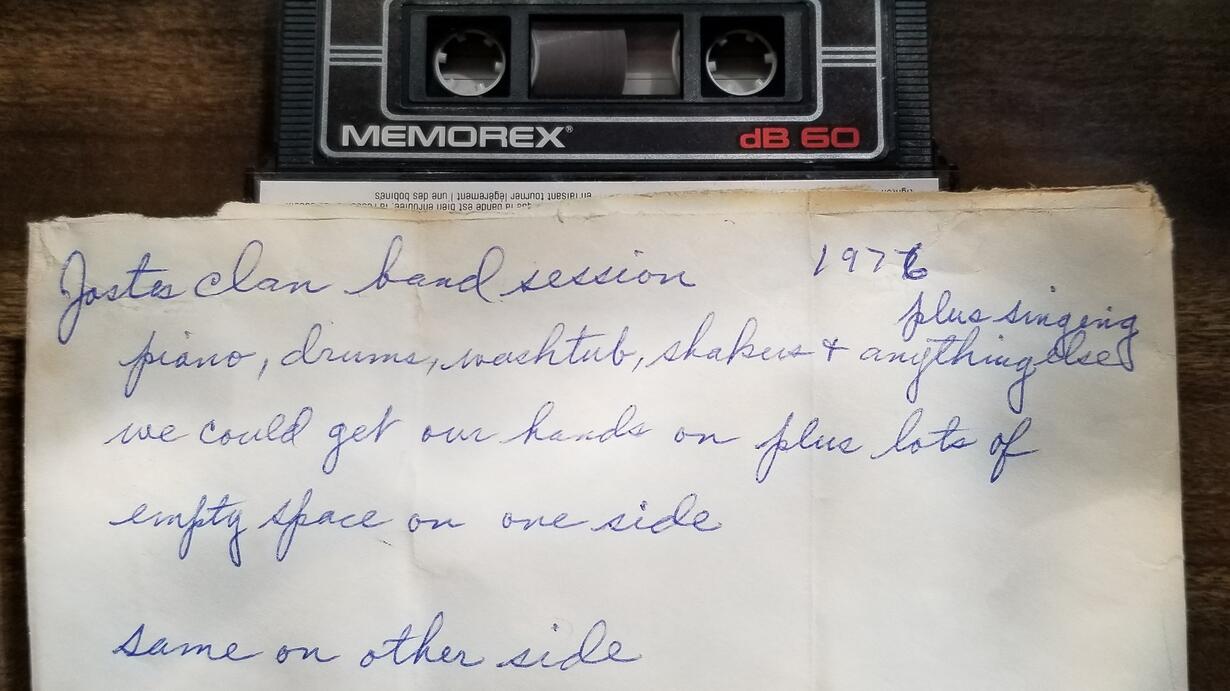 MEMOREX® dB 60
en faisant tourner légèrement l'une des bobines
que la bande est bien enroulée,
Jostes clan band session 1976
plus singing
piano, drums, washtub, shakers + anything else
we could get our hands on plus lots of
empty space on one side
same on other side